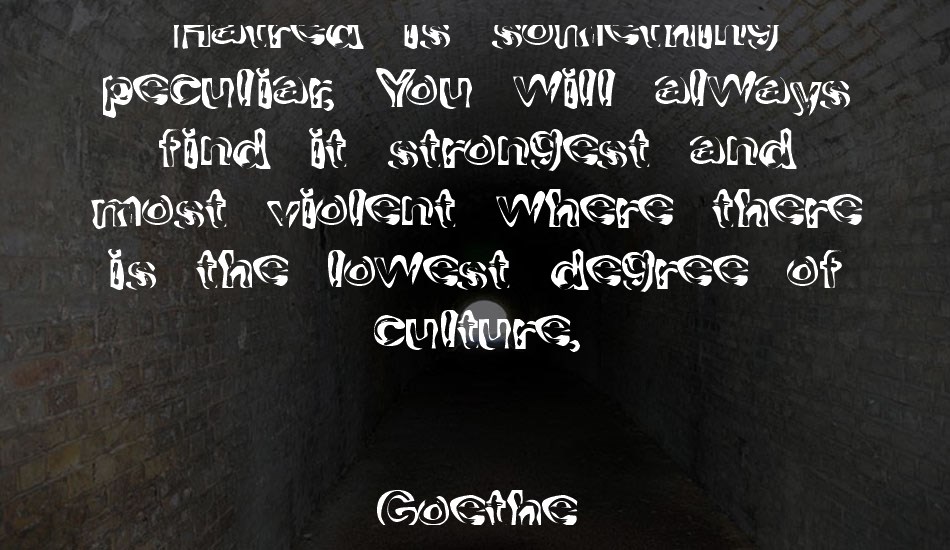 Hatred is something
peculiar, You will always
find it strongest and
most violent where there
is the lowest degree of
culture,
Goethe